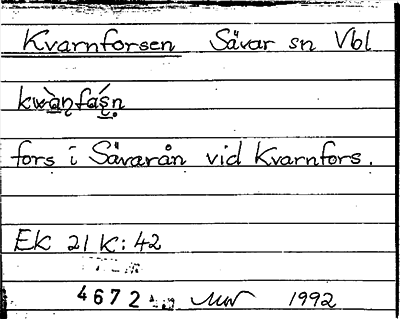 Kvarnforsen Sävar sn Vbl
kwàṇfás̩ṇ
fors i Sävarån vid Kvarnfors.
Ek 21 K: 42
4672
1992